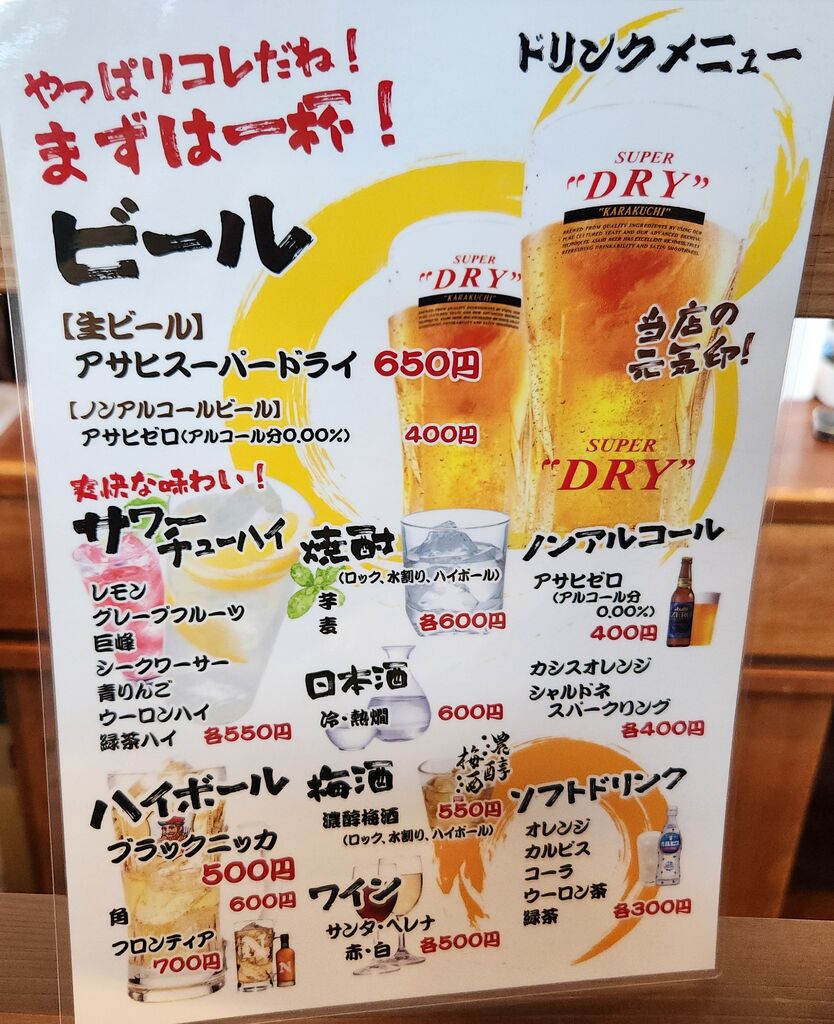 やっぱりコレだね！
まずは一杯！
ドリンクメニュー
SUPER
"DRY"
"KARAKUCHI"
BREWED FROM QUALITY INGREDIENTS BY USING OUR
PURE CULTURED YEAST AND OUR ADVANCED BREWING
TECHNIQUES. ASAHI BEER HAS EXCELLENT RICHNESS, TRULY
REFRESHING DRINKABILITY AND SATIN SMOOTHNESS.
SUPER
"DRY"
"KARAKUCHI"
ビール
【生ビール】
アサヒスーパードライ 650円
当店の
元気印！
【ノンアルコールビール】
アサヒゼロ(アルコール分0.00%) 400円
SUPER
"DRY"
爽快な味わい！
サワー
チューハイ
レモン
グレープフルーツ
巨峰
シークワーサー
青りんご
ウーロンハイ
緑茶ハイ 各550円
焼酎
(ロック、水割り、ハイボール)
芋
麦
各600円
ノンアルコール
アサヒゼロ
(アルコール分
0.00%)
400円
カシスオレンジ
シャルドネ
スパークリング
各400円
日本酒
冷・熱燗 600円
ハイボール
ブラックニッカ
500円
角 600円
フロンティア
700円
梅酒
濃醇
梅酒
濃醇梅酒 550円
(ロック、水割り、ハイボール)
ワイン
サンタ・ヘレナ
赤・白 各500円
ソフトドリンク
オレンジ
カルピス
コーラ
ウーロン茶
緑茶 各300円